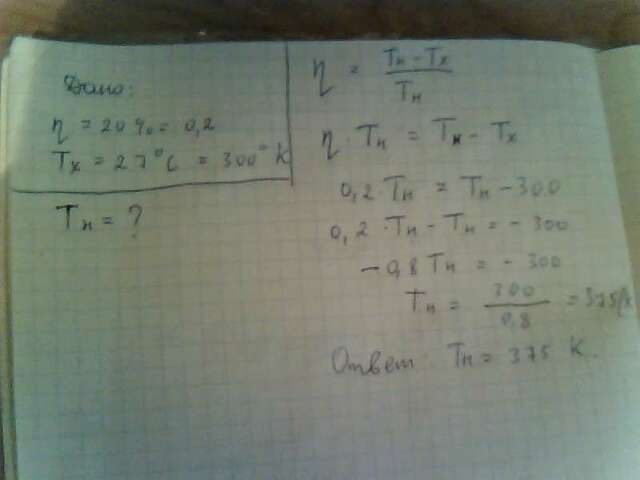 Дано:
η = 20% = 0,2
Tх = 27°C = 300° K
Tн = ?
η = Tн - Tх / Tн
η · Tн = Tн - Tх
0,2 · Tн = Tн - 300
0,2 · Tн - Tн = - 300
- 0,8 Tн = - 300
Tн = 300 / 0,8 = 375 K
Ответ: Tн = 375 K.